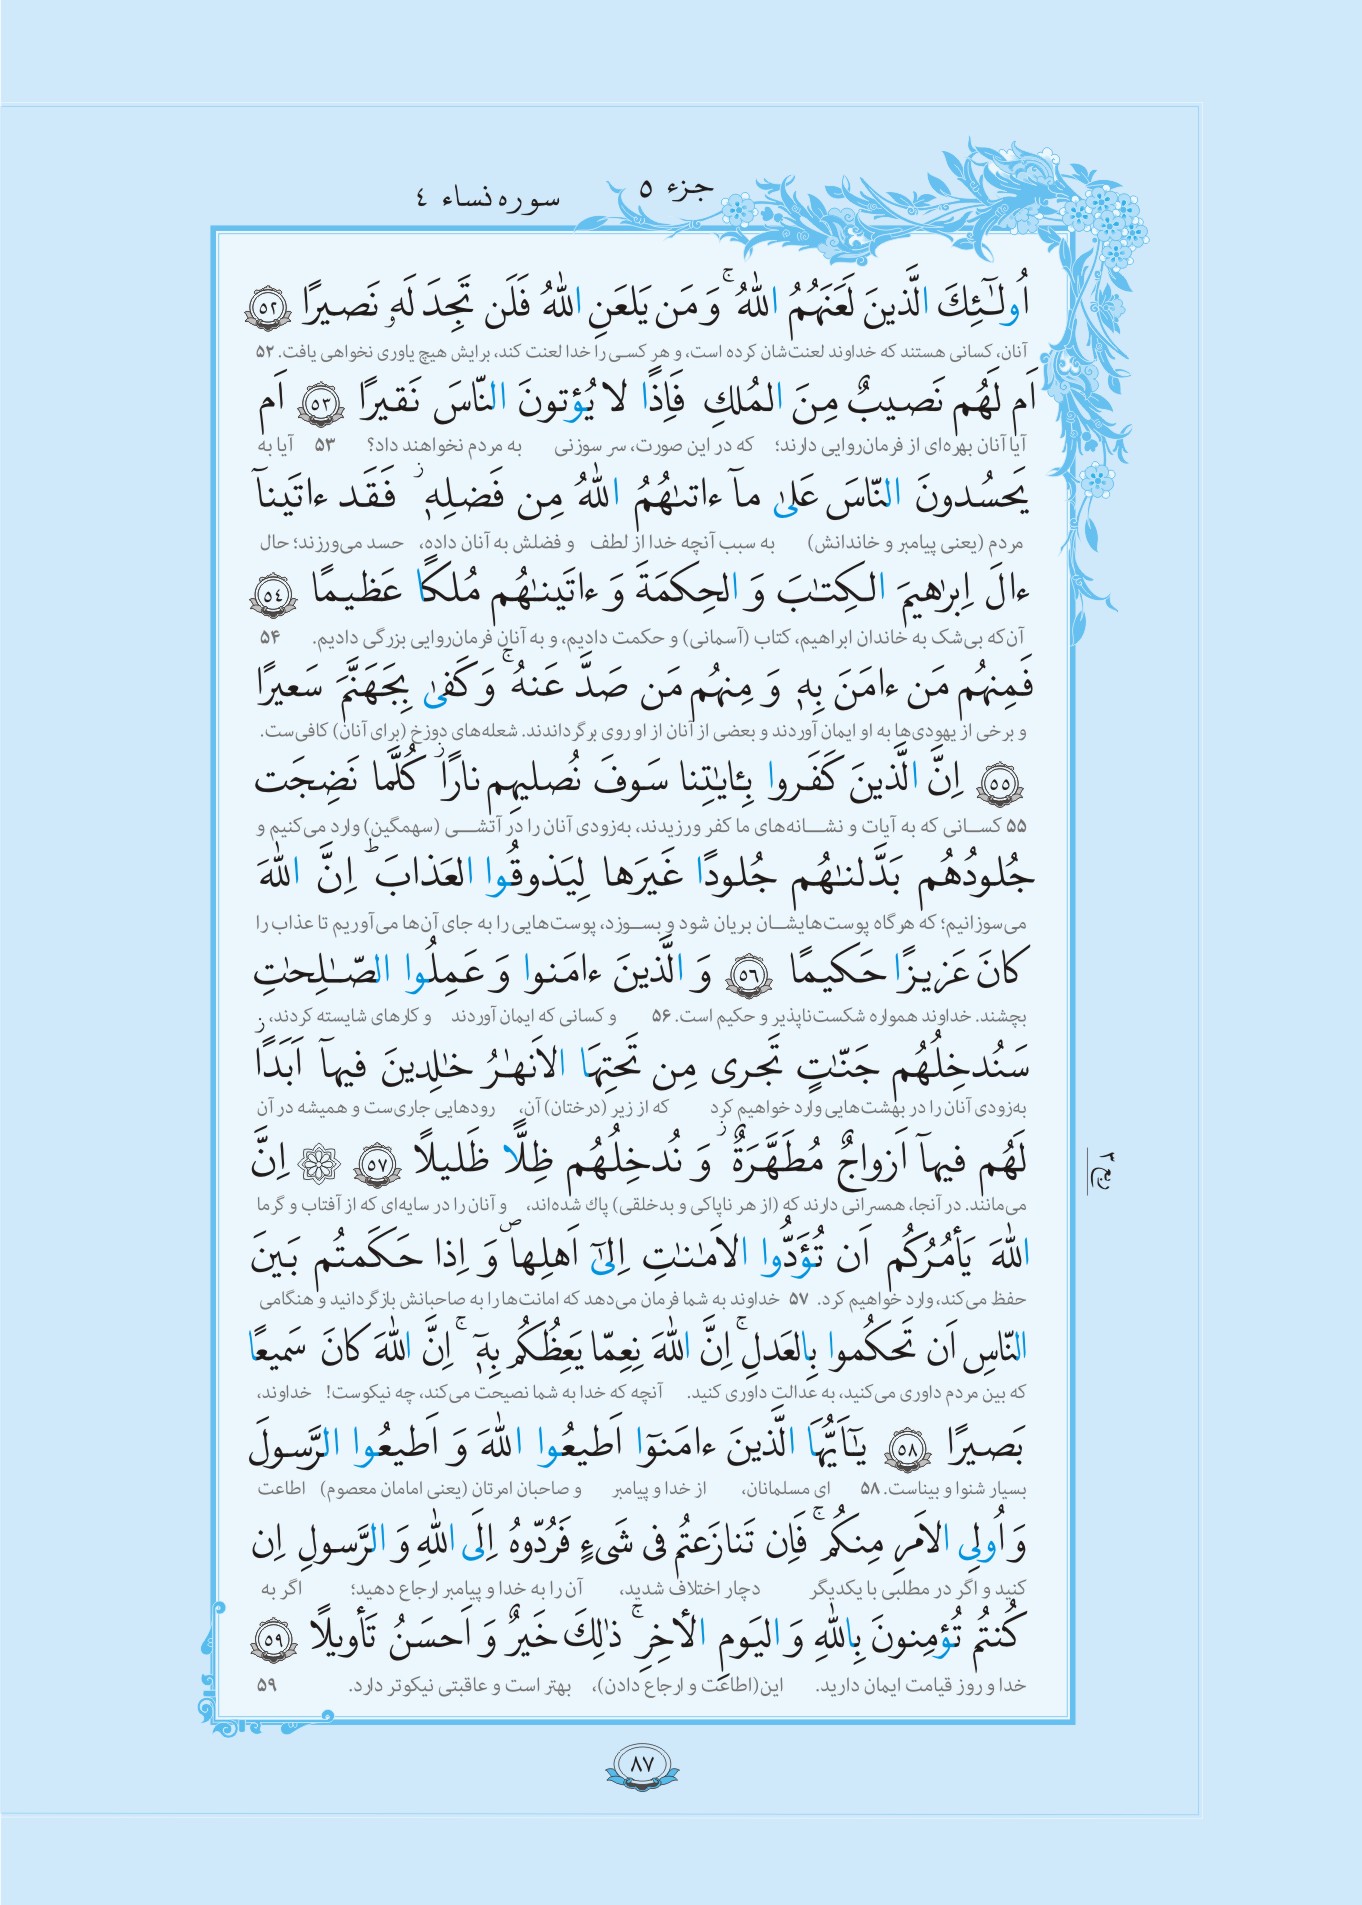 جزء ٥
سوره نساء ٤
اُولٰٓئِكَ الَّذينَ لَعَنَهُمُ اللّٰهُ ۚ وَ مَن يَلعَنِ اللّٰهُ فَلَن تَجِدَ لَهٗ نَصيرًا ﴿٥٢﴾
آنان، کسانی هستند که خداوند لعنت‌شان کرده است، و هر کسی را خدا لعنت کند، برایش هیچ یاوری نخواهی یافت. ۵۲
اَم لَهُم نَصيبٌ مِنَ المُلكِ فَاِذًا لا يُؤتونَ النّاسَ نَقيرًا ﴿٥٣﴾ اَم
آیا آنان بهره‌ای از فرمان‌روایی دارند؛ که در این صورت، سر سوزنی به مردم نخواهند داد؟ ۵۳ آیا به
يَحسُدونَ النّاسَ عَلىٰ مآ ءاتىٰهُمُ اللّٰهُ مِن فَضلِهٖ ۖ فَقَد ءاتَينآ
مردم (یعنی پیامبر و خاندانش) به سبب آنچه خدا از لطف و فضلش به آنان داده، حسد می‌ورزند؛ حال
ءالَ اِبرٰهيمَ الكِتٰبَ وَ الحِكمَةَ وَ ءاتَينٰهُم مُلكًا عَظيمًا ﴿٥٤﴾
آن‌که بی‌شک به خاندان ابراهیم، کتاب (آسمانی) و حکمت دادیم، و به آنان فرمان‌روایی بزرگی دادیم. ۵۴
فَمِنهُم مَن ءامَنَ بِهٖ وَ مِنهُم مَن صَدَّ عَنهُ ۚ وَ كَفىٰ بِجَهَنَّمَ سَعيرًا
و برخی از یهودی‌ها به او ایمان آوردند و بعضی از آنان از او روی برگرداندند. شعله‌های دوزخ (برای آنان) کافی‌ست.
﴿٥٥﴾ اِنَّ الَّذينَ كَفَروا بِـٔايٰتِنا سَوفَ نُصليهِم نارًا ز كُلَّما نَضِجَت
۵۵ کسانی که به آیات و نشانه‌های ما کفر ورزیدند، به‌زودی آنان را در آتشی (سهمگین) وارد می‌کنیم و
جُلودُهُم بَدَّلنٰهُم جُلودًا غَيرَها لِيَذوقُوا العَذابَ ؕ اِنَّ اللّٰهَ
می‌سوزانیم؛ که هرگاه پوست‌هایشان بریان شود و بسوزد، پوست‌هایی را به جای آن‌ها می‌آوریم تا عذاب را
كانَ عَزيزًا حَكيمًا ﴿٥٦﴾ وَ الَّذينَ ءامَنوا وَ عَمِلُوا الصّٰلِحٰتِ
بچشند. خداوند همواره شکست‌ناپذیر و حکیم است. ۵۶ و کسانی که ایمان آوردند و کارهای شایسته کردند،
سَنُدخِلُهُم جَنّٰتٍ تَجرى مِن تَحتِهَا الاَنهٰرُ خٰلِدينَ فيهآ اَبَدًا ز
به‌زودی آنان را در بهشت‌هایی وارد خواهیم کرد که از زیر (درختان) آن، رودهایی جاری‌ست و همیشه در آن
لَهُم فيهآ اَزواجٌ مُطَهَّرَةٌ ز وَ نُدخِلُهُم ظِلًّا ظَليلًا ﴿٥٧﴾ ۞ اِنَّ
می‌مانند. در آنجا، همسرانی دارند که (از هر ناپاکی و بدخلقی) پاك شده‌اند، و آنان را در سایه‌ای که از آفتاب و گرما
اللّٰهَ يَأمُرُكُم اَن تُؤَدُّوا الاَمٰنٰتِ اِلىٰٓ اَهلِها ص وَ اِذا حَكَمتُم بَينَ
حفظ می‌کند، وارد خواهیم کرد. ۵۷ خداوند به شما فرمان می‌دهد که امانت‌ها را به صاحبانش بازگردانید و هنگامی
النّاسِ اَن تَحكُموا بِالعَدلِ ۚ اِنَّ اللّٰهَ نِعِمّا يَعِظُكُم بِهٖٓ ۚ اِنَّ اللّٰهَ كانَ سَميعًا
که بین مردم داوری می‌کنید، به عدالت داوری کنید. آنچه که خدا به شما نصیحت می‌کند، چه نیکوست! خداوند،
بَصيرًا ﴿٥٨﴾ يٰٓاَيُّهَا الَّذينَ ءامَنوٓا اَطيعُوا اللّٰهَ وَ اَطيعُوا الرَّسولَ
بسیار شنوا و بیناست. ۵۸ ای مسلمانان، از خدا و پیامبر و صاحبان امرتان (یعنی امامان معصوم) اطاعت
وَ اُولِى الاَمرِ مِنكُم ۚ فَاِن تَنازَعتُم فى شَىءٍ فَرُدّوهُ اِلَى اللّٰهِ وَ الرَّسولِ اِن
کنید و اگر در مطلبی با یکدیگر دچار اختلاف شدید، آن را به خدا و پیامبر ارجاع دهید؛ اگر به
كُنتُم تُؤمِنونَ بِاللّٰهِ وَ اليَومِ الأخِرِ ۚ ذٰلِكَ خَيرٌ وَ اَحسَنُ تَأويلًا ﴿٥٩﴾
خدا و روز قیامت ایمان دارید. این(اطاعت و ارجاع دادن)، بهتر است و عاقبتی نیکوتر دارد. ۵۹
ربع ٣
٨٧